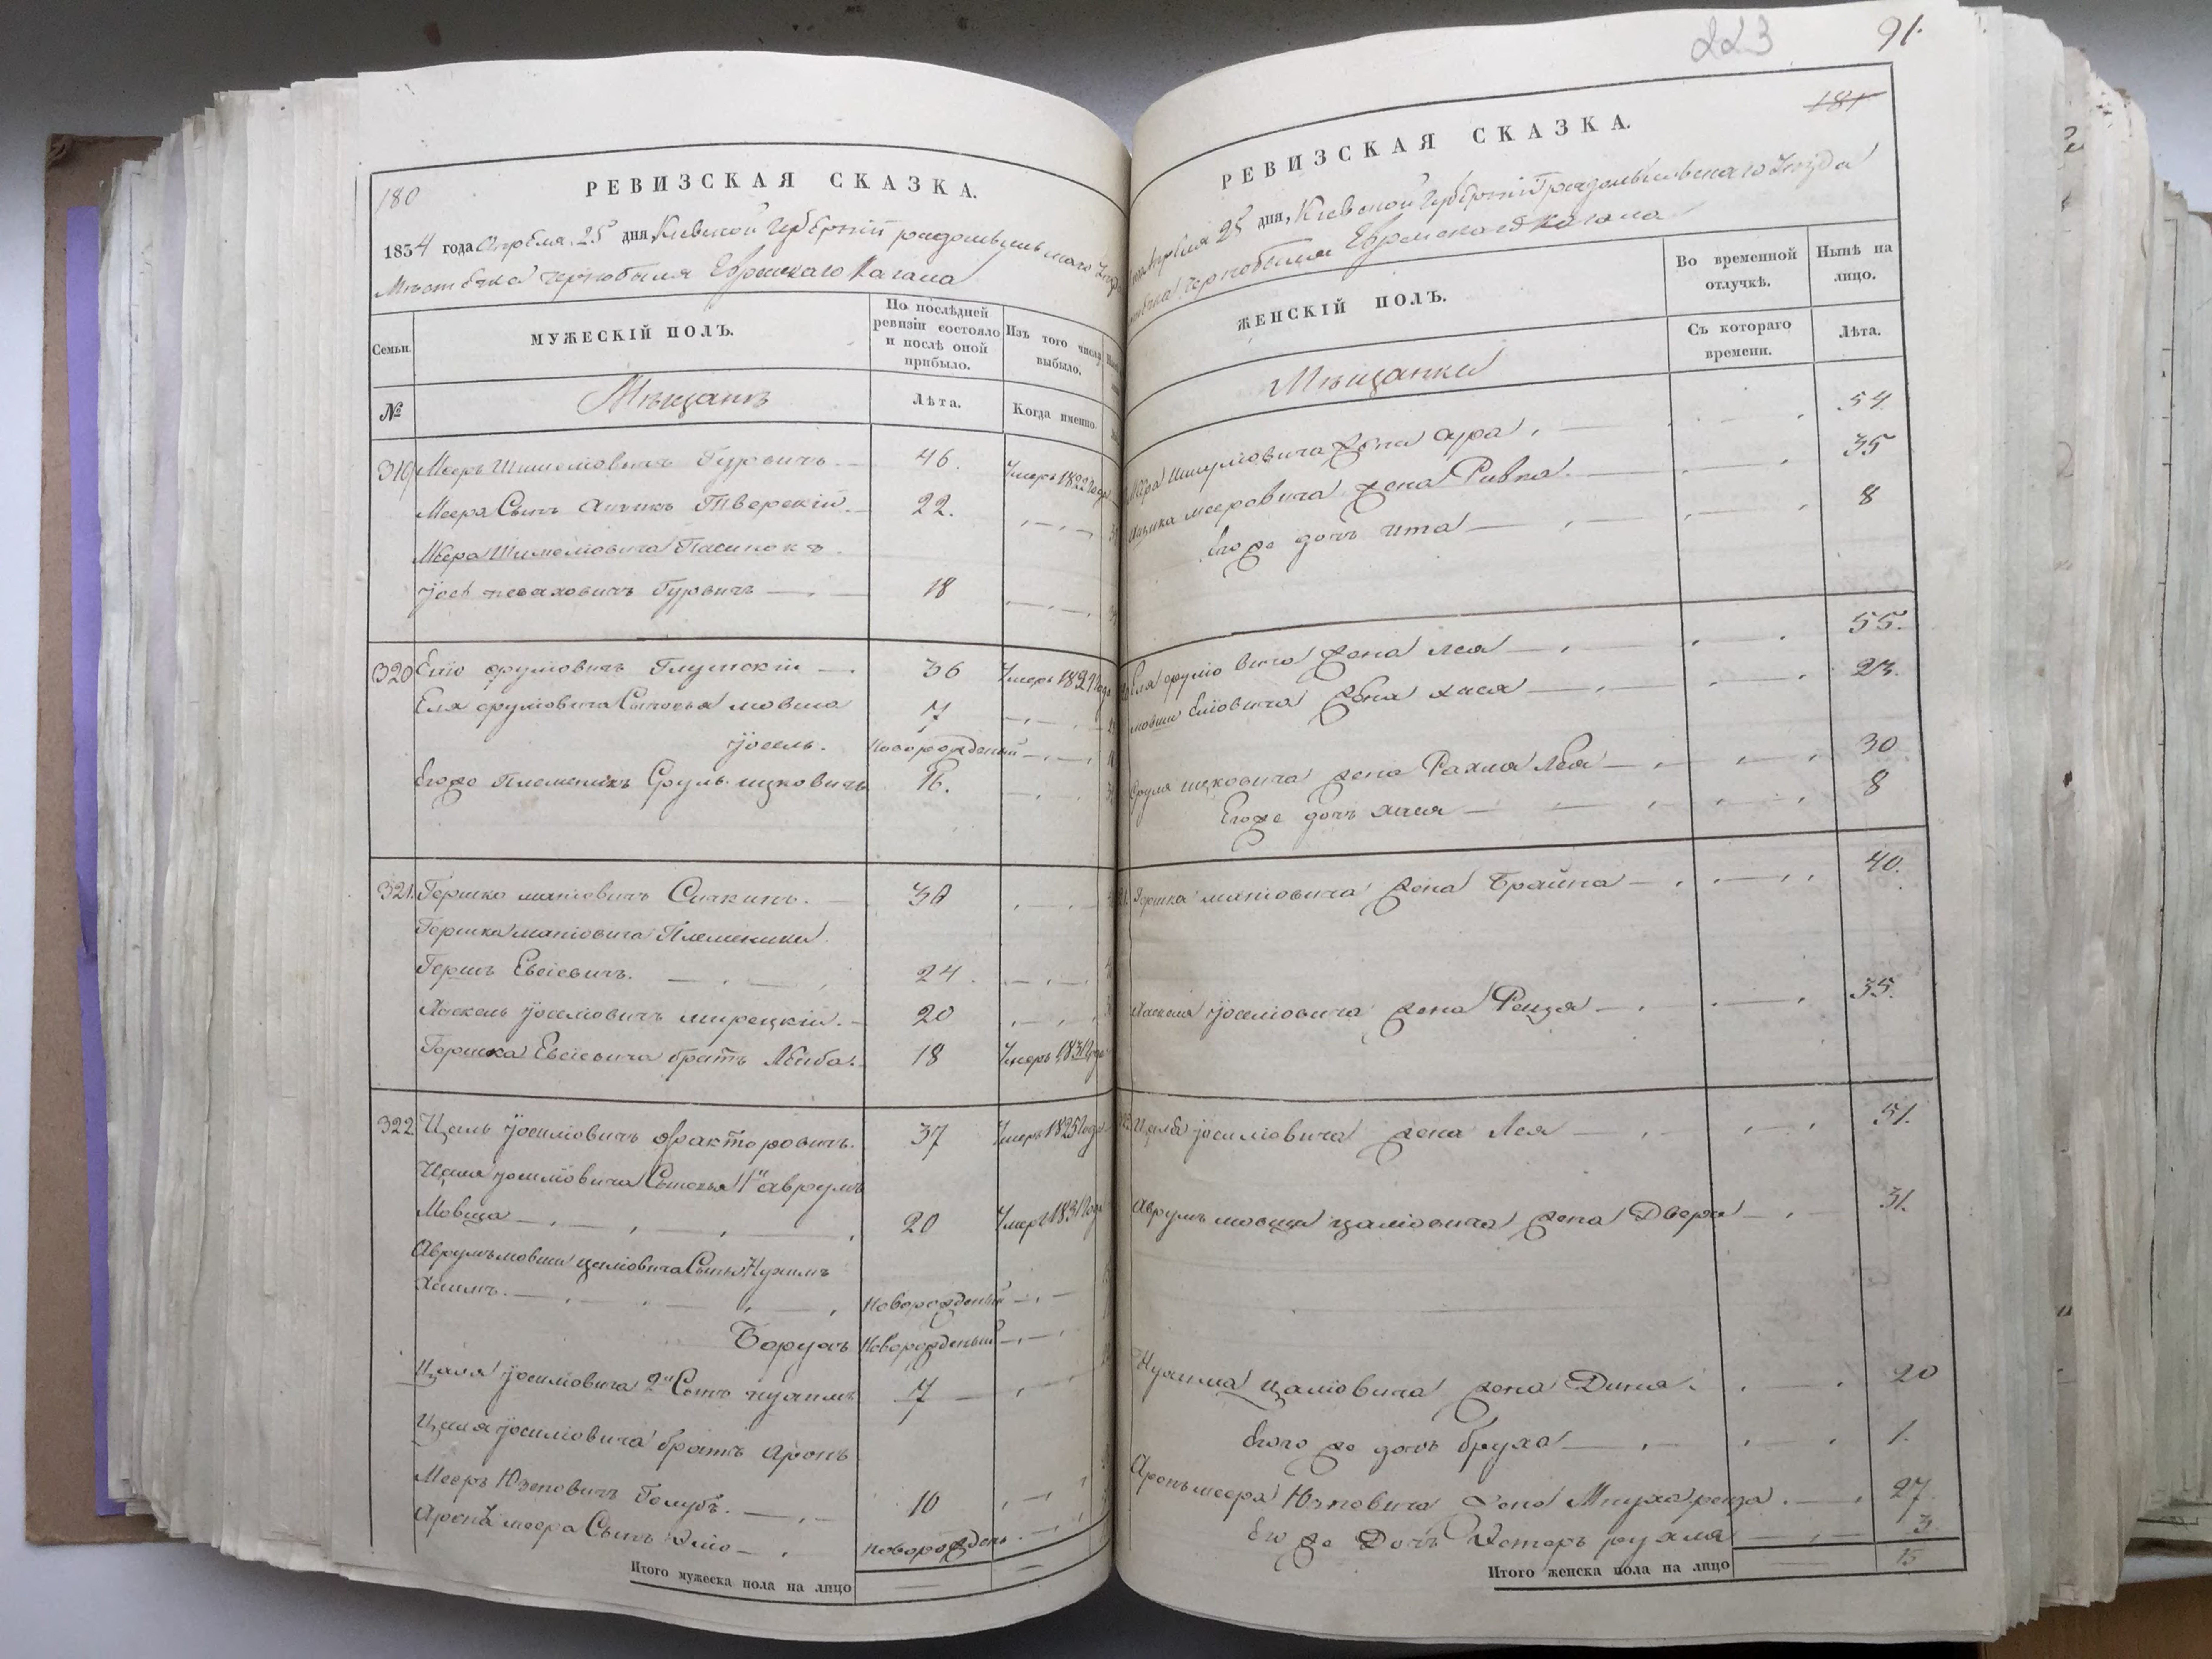 180
РЕВИЗСКАЯ СКАЗКА.
1834 года Апреля 25 дня Киевской Губерніи радомысльскаго
Местечка чернобыля Еврейскаго Кагала
Семьи
МУЖЕСКІЙ ПОЛЪ.
По послѣдней ревизіи состояло и послѣ оной прибыло.
Изъ того числа выбыло.
№
Мещанъ
Лѣта.
Когда именно.
319 Мееръ Шимсіовичъ Гуровичъ 46. Умеръ 1822 года
Меера Сынъ Ицикъ Тверскій 22.
Меера Пасинокъ
Іосѣ Гуровичъ 18
320 Еліо сруліовичъ Глускій 36 Умеръ 1829 года
Еля сруліовича Сыновья мовша 7
Іосель. Новорожденый
Егоже Племеникъ Сруль ицковичъ 16.
321. Гершко матіовичъ Сичкинъ. 30
Гершка матіовича Племеники.
Гершъ Евсіевичъ. 24
Хаскель Іосиіовичъ мирецкій. 20
Гершка Евсіевича братъ Лейба. 18 Умеръ 1831 года
322 Цаль Іосиліовичъ факторовичъ. 37 Умеръ 1825 года
Цаля Іосиліовича Сыновья 1й аврумъ
Мовша 20 Умеръ 1831 года
Аврумъ мовши цаліовича Сынъ Нухимъ
Хаимъ. Новорожденый
Борухъ Новорожденый
Цаля Іосиліовича 2й Сынъ нухимъ 7
Цаля Іосиліовича братъ Аронъ
Мееръ Юзиповичъ Голубъ. 10
Арона меера Сынъ новорожденъ
Итого мужеска пола на лицо
223
91.
181
РЕВИЗСКАЯ СКАЗКА.
Апреля 25 дня, Киевской Губерніи Радомысльскаго Уезда
чернобыля Еврейскаго Кагала
ЖЕНСКІЙ ПОЛЪ.
Во временной отлучкѣ.
Нынѣ на лицо.
Мещанки
Съ котораго времени.
Лѣта.
жена сура 54
Ицыка мееровича жена Ривка. 35
Его же дочь ита 8
Еля сруліовича жена лея 55.
мовши Еліовича жена хася 23.
Сруля ицковича жена Рахля Лея 30
Егоже дочь хася 8
Гершка матіовича жена Брайна 40.
Хаскеля Іосиліовича жена Рейзя 35.
Цаля Іосиліовича жена Лея 51.
Аврумъ мовши цаліовича жена Двора 31.
Нухима цаліовича жена Дина. 20
Его же дочь Бруха 1.
Аронъ меера Юзиповича жена 27
Его же Дочъ Естеръ рухля 3
Итого женска пола на лицо 15